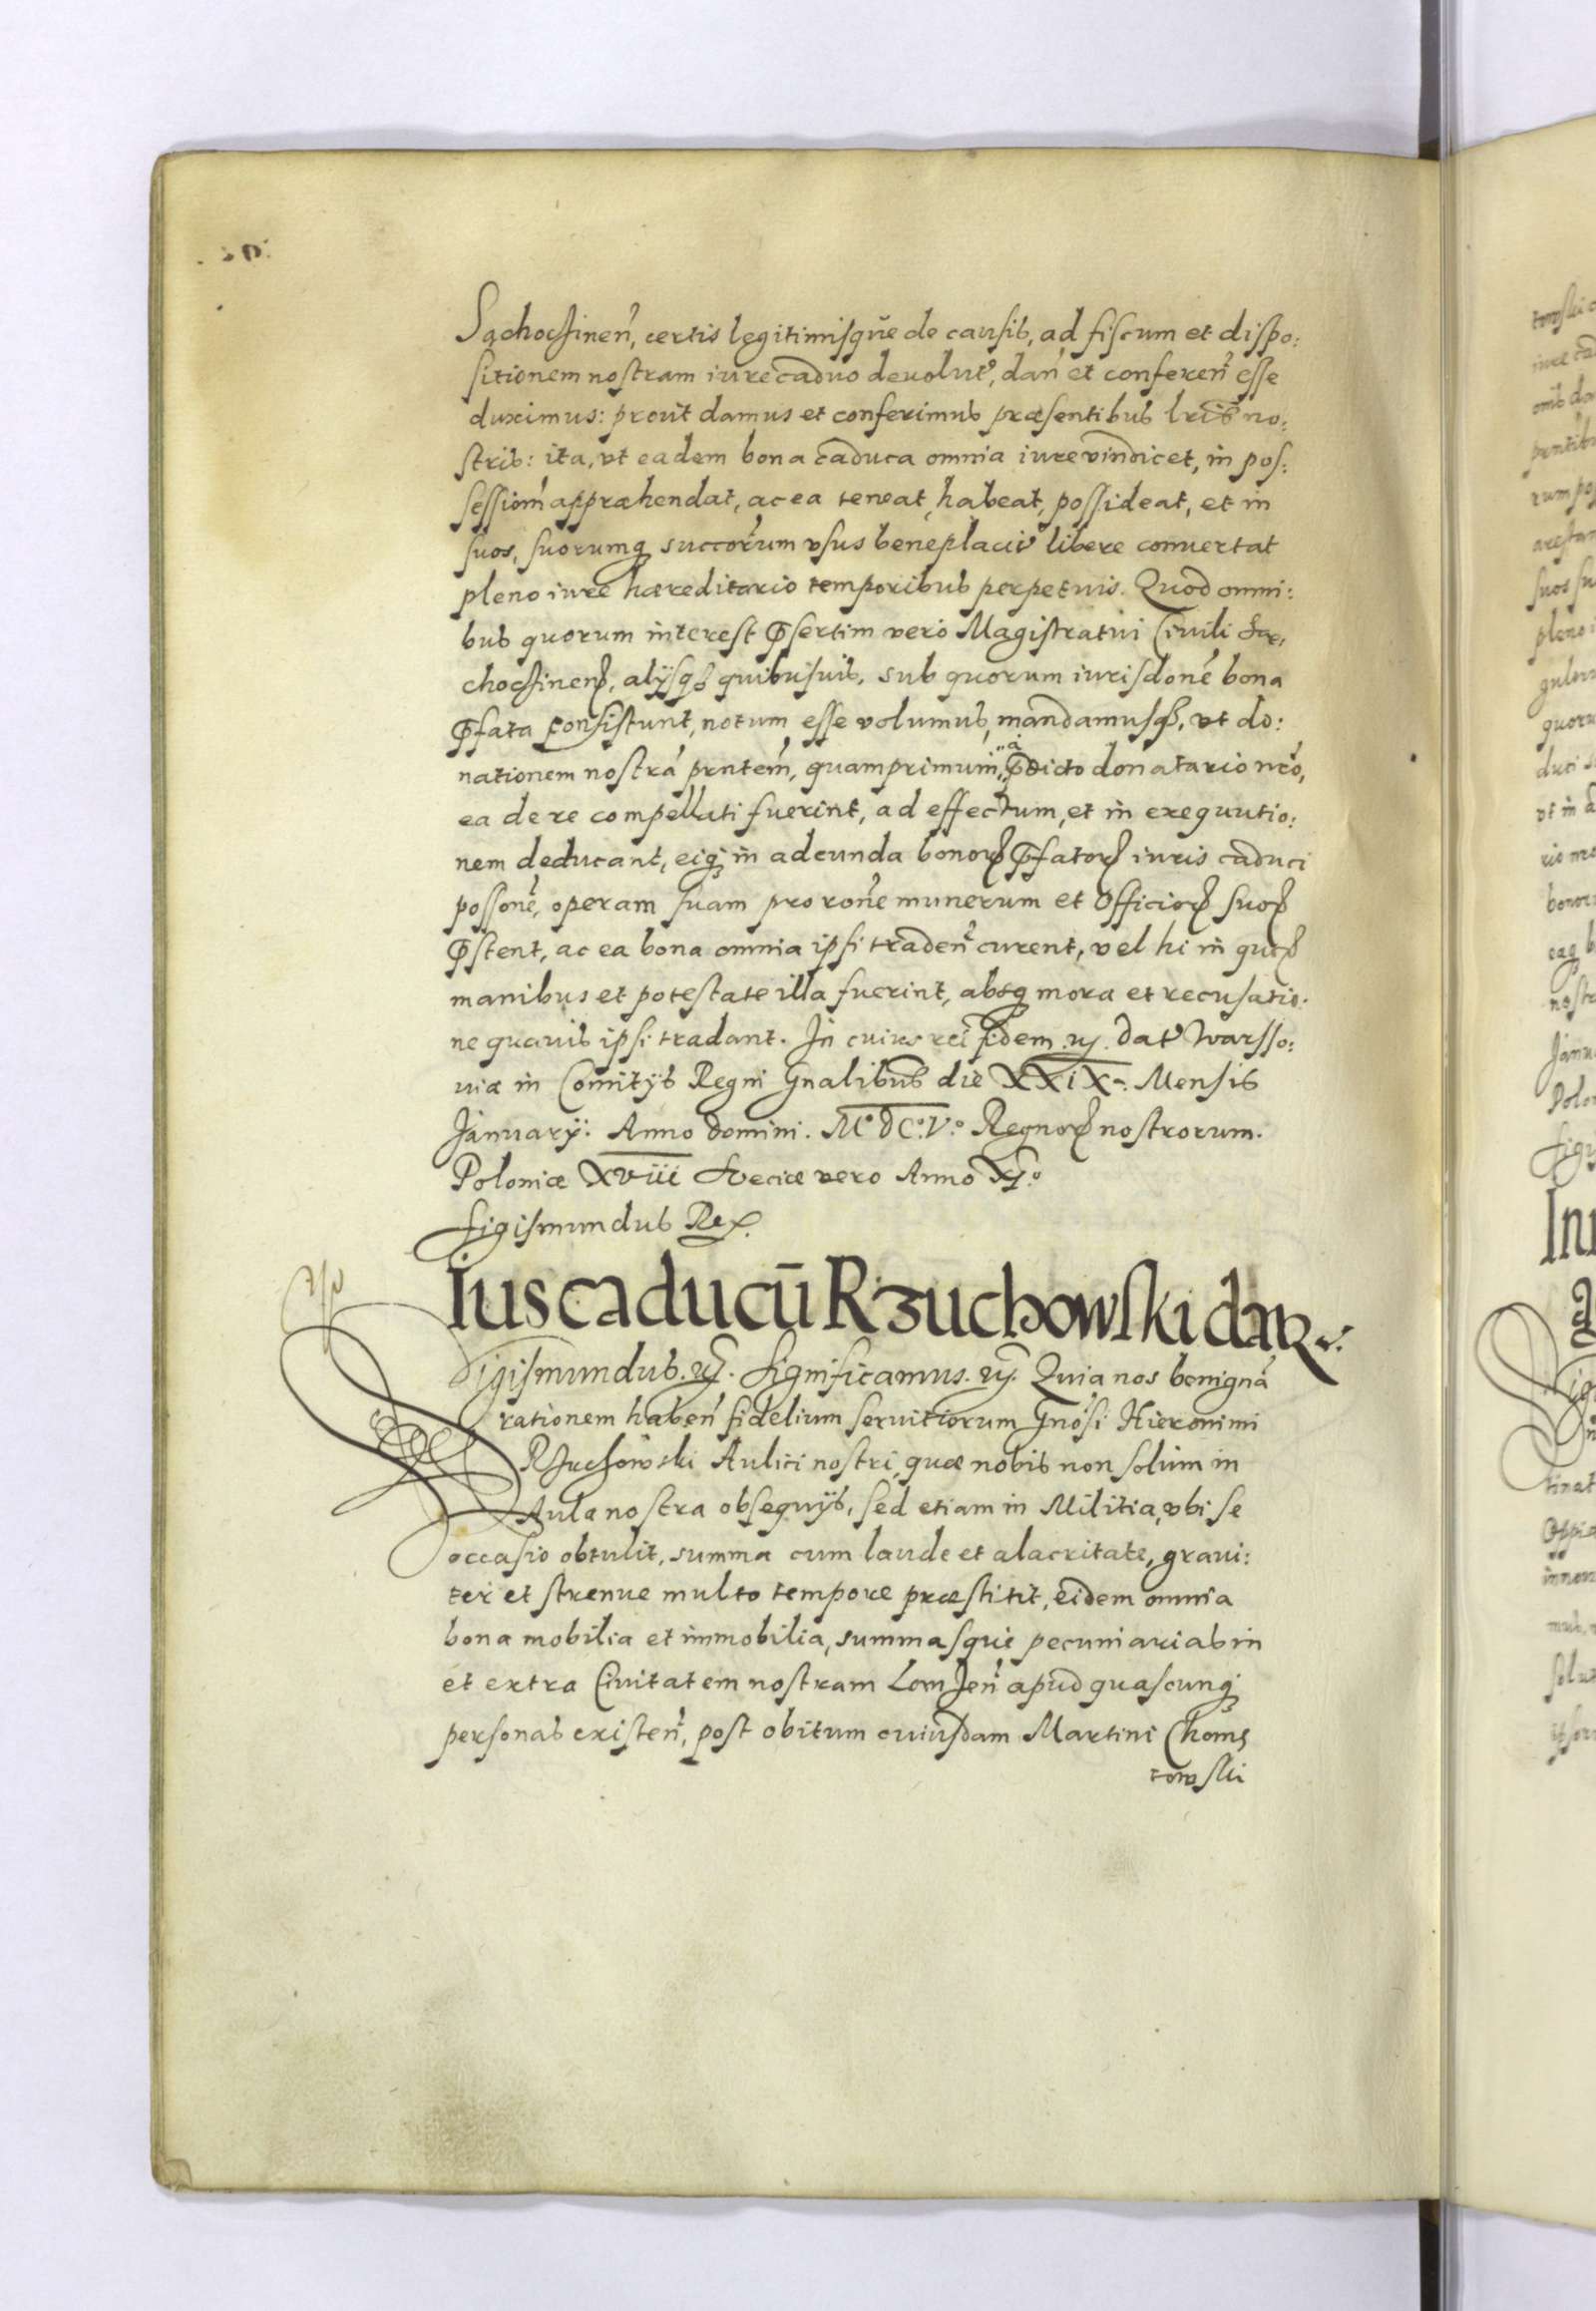 Sąchocſinen̄, certis lęgitimiſqūe de cauſis, ad fiſcum et diſpo:
ſitionem noſtram iure caduo deuolut', dan̄ et conferen̄ eſse
duximus: prout damus et conferimus præſentibus lr̄is no:
ſtris: ita, vt eadem bona caduca omnia iure vindicet, in poſ:
ſeſſiom̄ appræhendat, ac ea teneat, habeat, poſſideat, et in
ſuos, ſuorumq succor̄um vſus beneplacit' libere conuertat
pleno iure hæreditario temporibus perpetuis. Quod omni:
bus quorum intereſt p̄ſertim vero Magiſtratui Ciuili Sa,
chocſinenſ, alijſqȝ quibuſuis, sub quorum iuriſdonē bona
p̄fata conſiſtunt, notum eſse volumus, mandamuſqȝ, vt do:
nationem noſtrā prntem̄, quamprimum, "a p̄dicto donatario nr̄o,
ea de re compellati fuerint, ad effectum, et in exequutio:
nem deducant, eiq in adeunda bonoꝝ p̄fatoꝝ iuris caduci
poſſonē, operam ſuam pro ronē munerum et Officioꝝ ſuoꝝ
p̄ſtent, ac ea bona omnia ipſi traden̄ curent, vel hi in quoꝝ
manibus et poteſtate illa fuerint, absq mora et recuſatio:
ne quauis ipſi tradant. In cuius rei fidem. ꝛc. dat' Warſſo:
uiæ in Comitijs Regni Gnalibus die XXiX. Mensis
January. Anno domini. M.° d C.° V.° Regnoꝝ noſtrorum.
Poloniæ Xviii Sveciæ vero Anno Xj.°
Sigiſmundus Rex.
Ius caducū Rzuchowſki datꝛ.
Sigiſmundus. ꝛc. Significamus. ꝛc. Quia nos benignā
rationem haben̄ fidelium seruitiorum Gnōſi Hieronimi
Rzuchowski Aulici noſtri, quæ nobis non ſolum in
Aula noſtra obſequijs, ſed etiam in Militia, vbi ſe
occaſio obtulit, summa cum laude et alacritate, graui:
ter et ſtrenue multo tempore præſtitit, eidem omnia
bona mobilia et immobilia, summaſque pecuniarias in
et extra Ciuitatem noſtram Lomzen̄ apud quaſcunq
perſonas exiſten̄, poſt obitum cuiuſdam Martini Choms
towſki